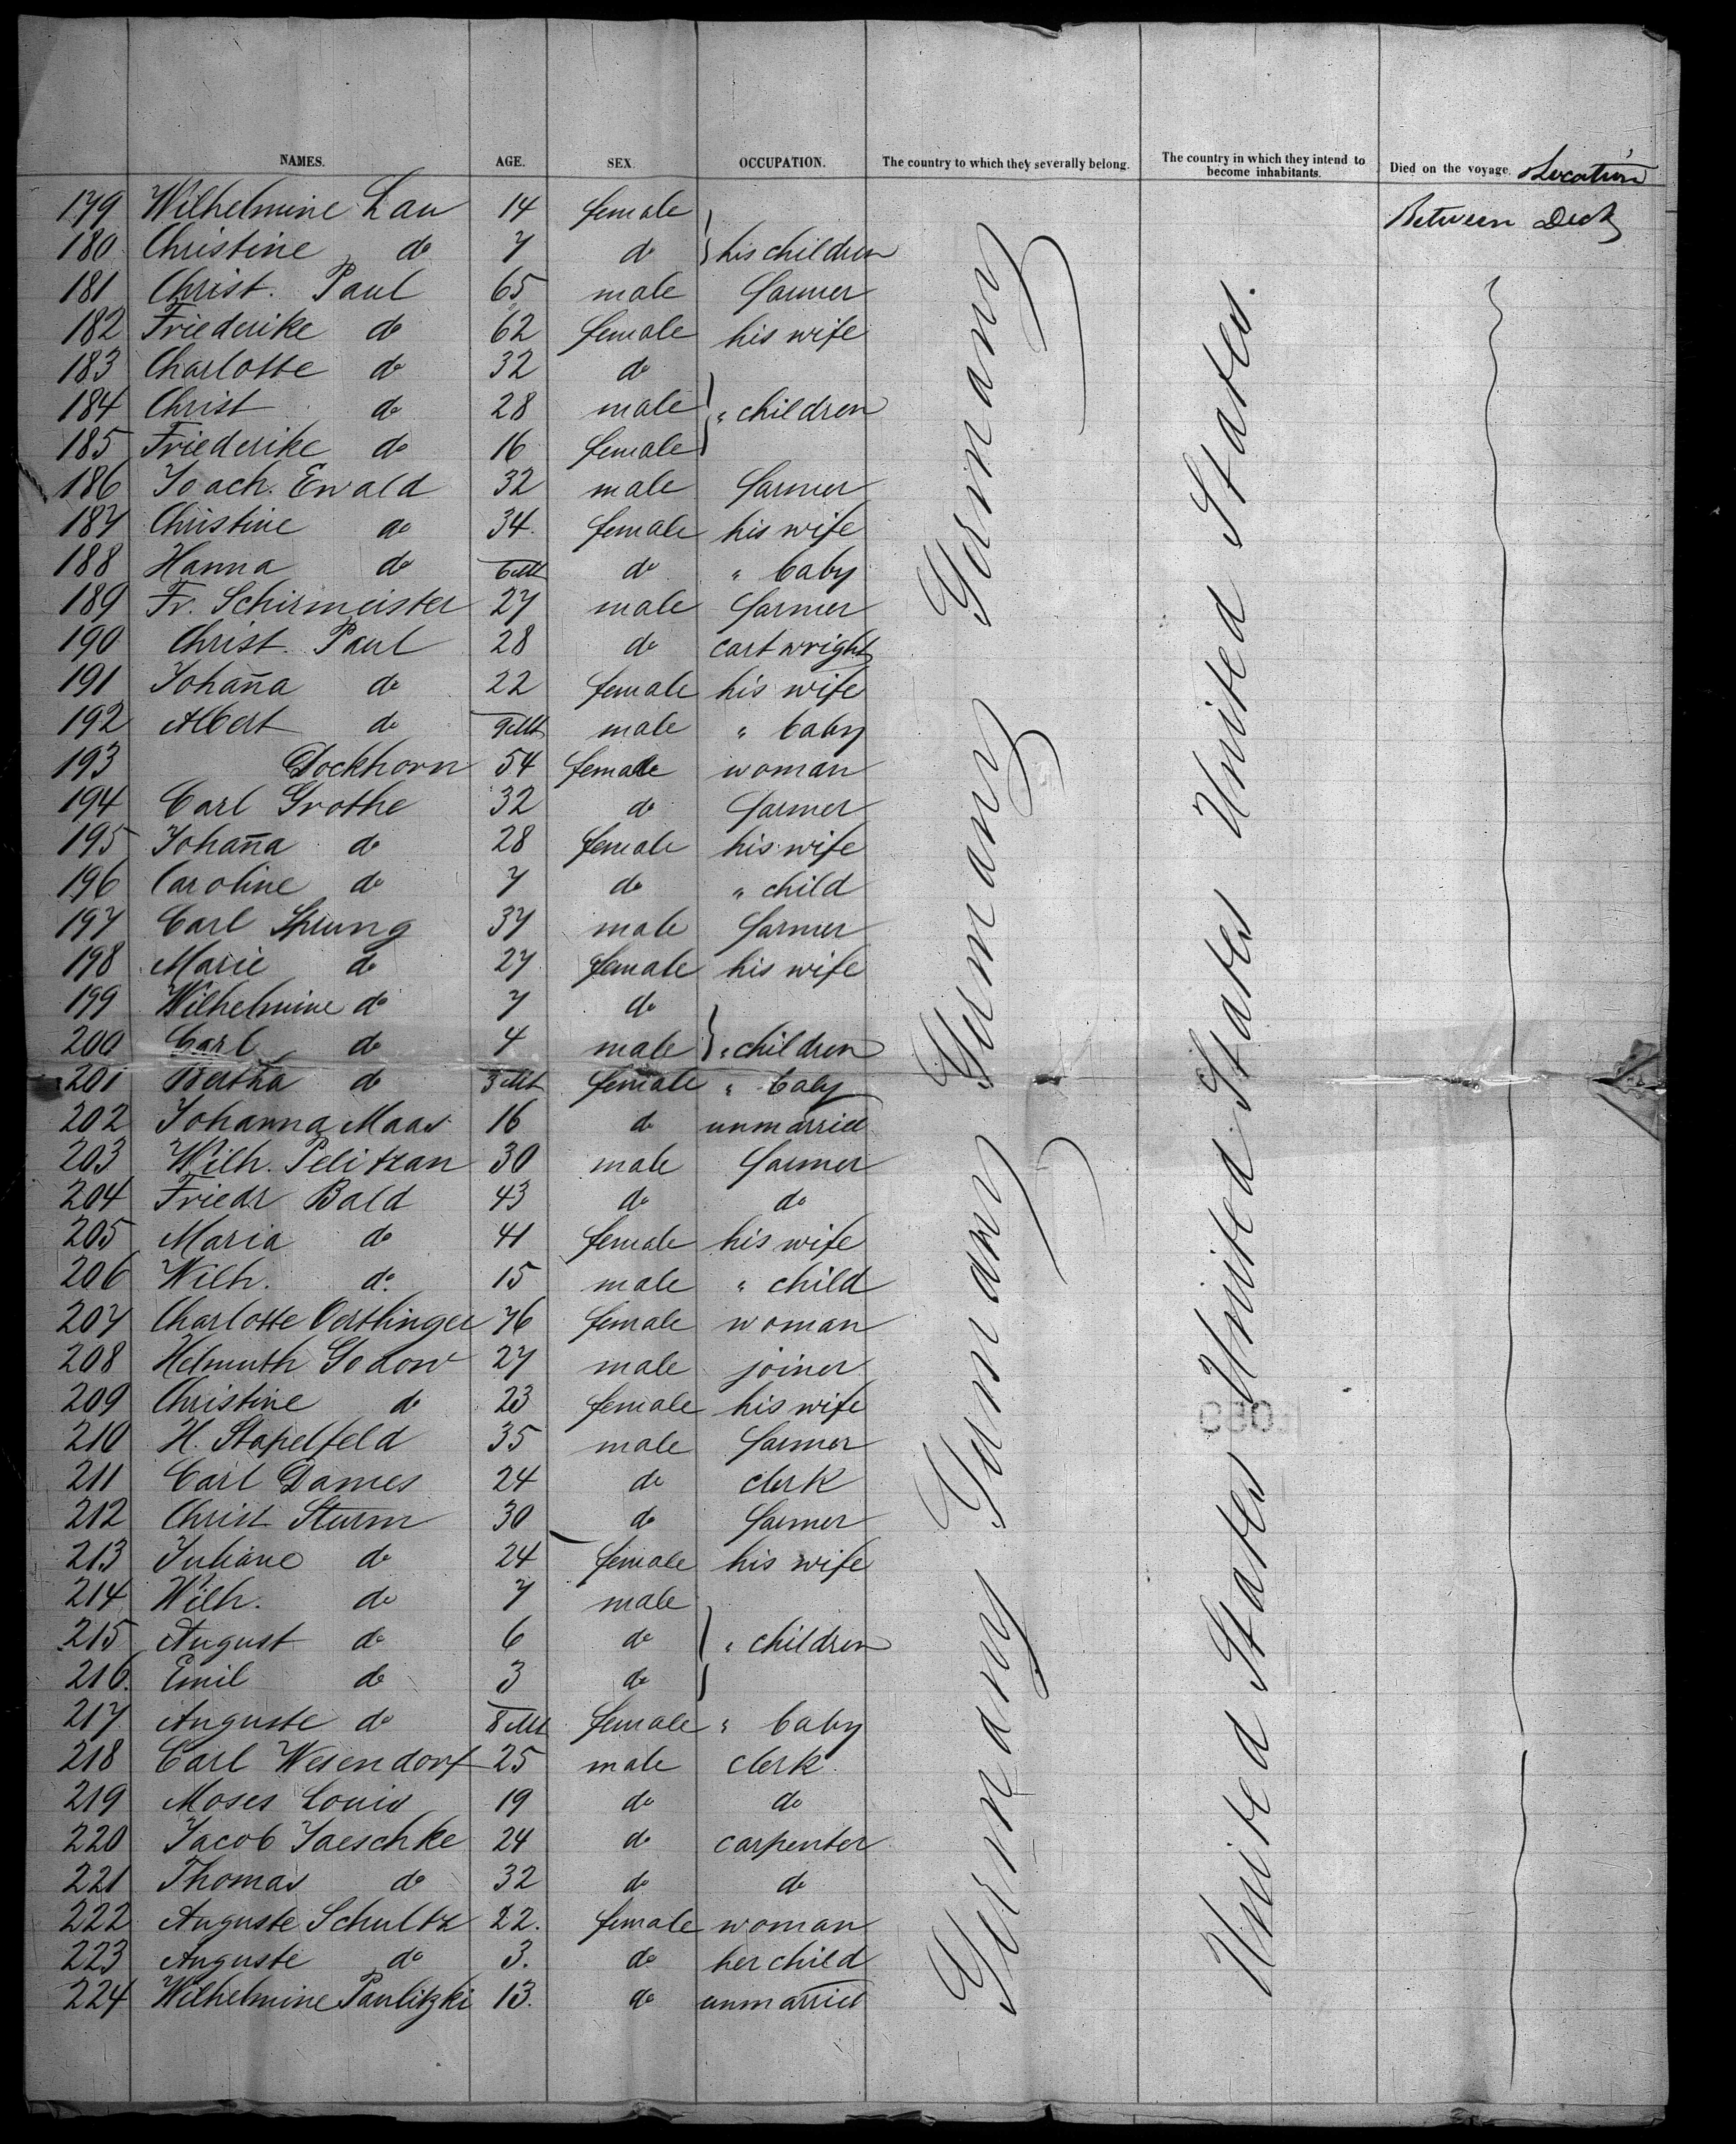 NAMES. AGE. SEX. OCCUPATION. The country to which they severally belong. The country in which they intend to become inhabitants. Died on the voyage. Location
179 Wilhelmine Lau 14 female Between Deck
180 Christine do 7 do } his children
181 Christ. Paul 65 male farmer
182 Friederike do 62 female his wife
183 Charlotte do 32 do
184 Christ do 28 male } " children
185 Friederike do 16 female
186 Joach. Ewald 32 male farmer
187 Christine do 34. female his wife
188 Hanna do 6 Mt do " baby
189 Fr. Schirmeister 27 male farmer
190 Christ. Paul 28 do cartwright
191 Johan̄a do 22 female his wife
192 Albert do 9 Mt male " baby
193 Dockhorn 54 female woman
194 Carl Grothe 32 do farmer
195 Johan̄a do 28 female his wife
196 Caroline do 7 do " child
197 Carl Sprung 37 male farmer
198 Marie do 27 female his wife
199 Wilhelmine do 7 do
200 Carl do 4 male } " children
201 Bertha do 3 Mt female " baby
202 Johanna Maas 16 do unmarried
203 Wilh. Pelitzan 30 male farmer
204 Friedr Bald 43 do do
205 Maria do 41 female his wife
206 Wilh. do. 15 male " child
207 Charlotte Oerthinger 76 female woman
208 Helmuth Godow 27 male joiner
209 Christine do 23 female his wife
210 H. Stapelfeld 35 male farmer
211 Carl Dames 24 do clerk
212 Christ Sturm 30 do farmer
213 Juliane do 24 female his wife
214 Wilh. do 7 male
215 August do 6 do } " children
216. Emil do 3 do
217 Auguste do 8 Mt female " baby
218 Carl Wesendorf 25 male clerk
219 Moses Louis 19 do do
220 Jacob Jaeschke 24 do carpenter
221 Thomas do 32 do do
222 Auguste Schultz 22. female woman
223 Auguste do 3. do her child
224 Wilhelmine Paulitzki 13. do unmarried
Germany Germany Germany Germany
United States United States United States.